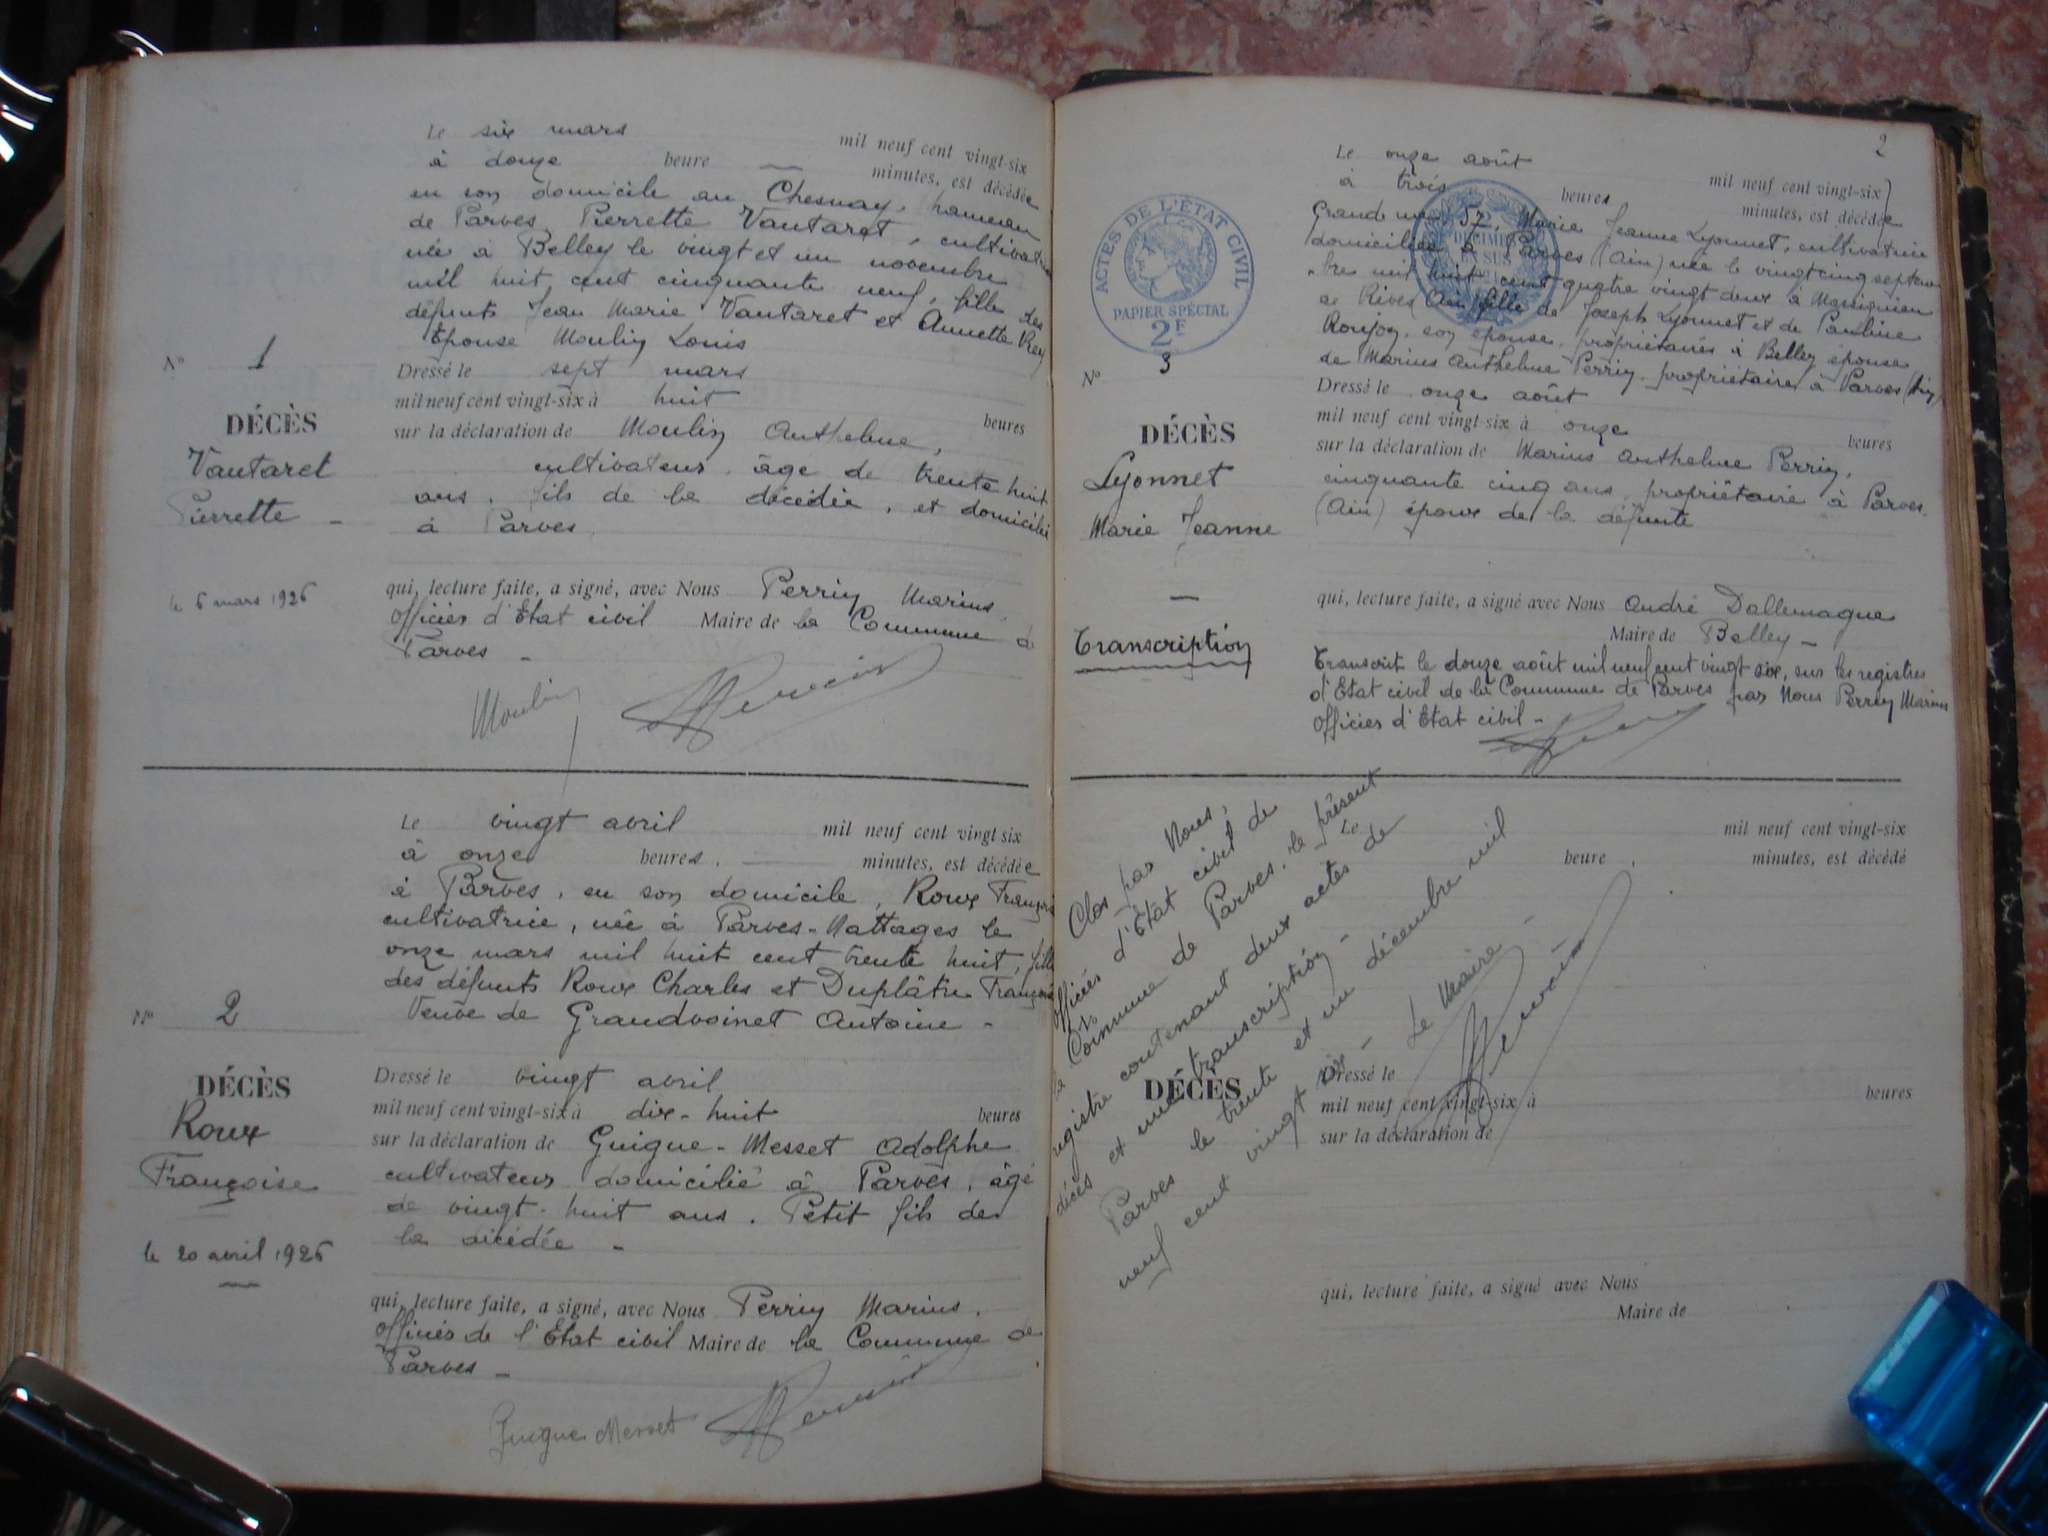 Le six mars mil neuf cent vingt-six
à douze heure — minutes, est décédée
en son domicile au Chesnay, hameau
de Parves, Pierrette Vautaret, cultivatrice
née à Belley le vingt et un novembre
mil huit cent cinquante neuf, fille des
défunts Jean Marie Vautaret et Annette Rey
Epouse Moulin Louis
N° 1
Dressé le sept mars
mil neuf cent vingt-six à huit heures
DÉCÈS
sur la déclaration de Moulin Anthelme,
Vautaret
cultivateur. âgé de trente huit
Pierrette -
ans. fils de la décédée, et domicilié
à Parves.
le 6 mars 1926
qui, lecture faite, a signé, avec Nous Perrin Marius,
Officier d'Etat civil Maire de la Commune de
Parves -
Moulin
Le vingt avril mil neuf cent vingt six
à onze heures. — minutes, est décédée
à Parves, en son domicile, Roux Françoise
cultivatrice, née à Parves-Nattages le
onze mars mil huit cent trente huit, fille
des défunts Roux Charles et Duplâtre Françoise
Veuve de Grandvoinet Antoine -
N° 2
DÉCÈS
Roux
Françoise
le 20 avril 1926
Dressé le vingt avril
mil neuf cent vingt-six à dix-huit heures
sur la déclaration de Guigue-Messet Adolphe
cultivateur domicilié à Parves, âgé
de vingt-huit ans. Petit fils de
la décédée -
qui, lecture faite, a signé, avec Nous Perrin Marius.
Officier de l'Etat civil Maire de la Commune de
Parves -
Guigue Messet
2
Le onze août mil neuf cent vingt-six
à trois heures minutes, est décédée
Grande rue 57, Marie Jeanne Lyonnet, cultivatrice
domiciliée à Parves (Ain) née le vingt cinq septem
-bre mil huit cent quatre vingt deux à
de Rives Ain fille de Joseph Lyonnet et de Pauline
Roujon, son épouse, propriétaires à Belley épouse
de Marius Anthelme Perrin, propriétaire à Parves (Ain)
ACTES DE L'ÉTAT CIVIL
PAPIER SPÉCIAL
2F
N° 3
DÉCÈS
Lyonnet
Marie Jeanne
—
Transcription
Dressé le onze août
mil neuf cent vingt-six à onze heures
sur la déclaration de Marius Anthelme Perrin,
cinquante cinq ans, propriétaire à Parves
(Ain) époux de la défunte
qui, lecture faite, a signé avec Nous André Dallemagne
Maire de Belley -
Transcrit le douze août mil neuf cent vingt six, sur les registres
d'Etat civil de la Commune de Parves par Nous Perrin Marius
Officier d'Etat civil -
Le mil neuf cent vingt-six
heure, minutes, est décédé
Clos par Nous,
officier d'Etat civil de
la Commune de Parves, le présent
registre contenant deux actes de
décès et une transcription -
Parves le trente et un décembre mil
neuf cent vingt six - Le Maire -
DÉCÈS
Dressé le
mil neuf cent vingt-six à heures
sur la déclaration de
qui, lecture faite, a signé avec Nous
Maire de